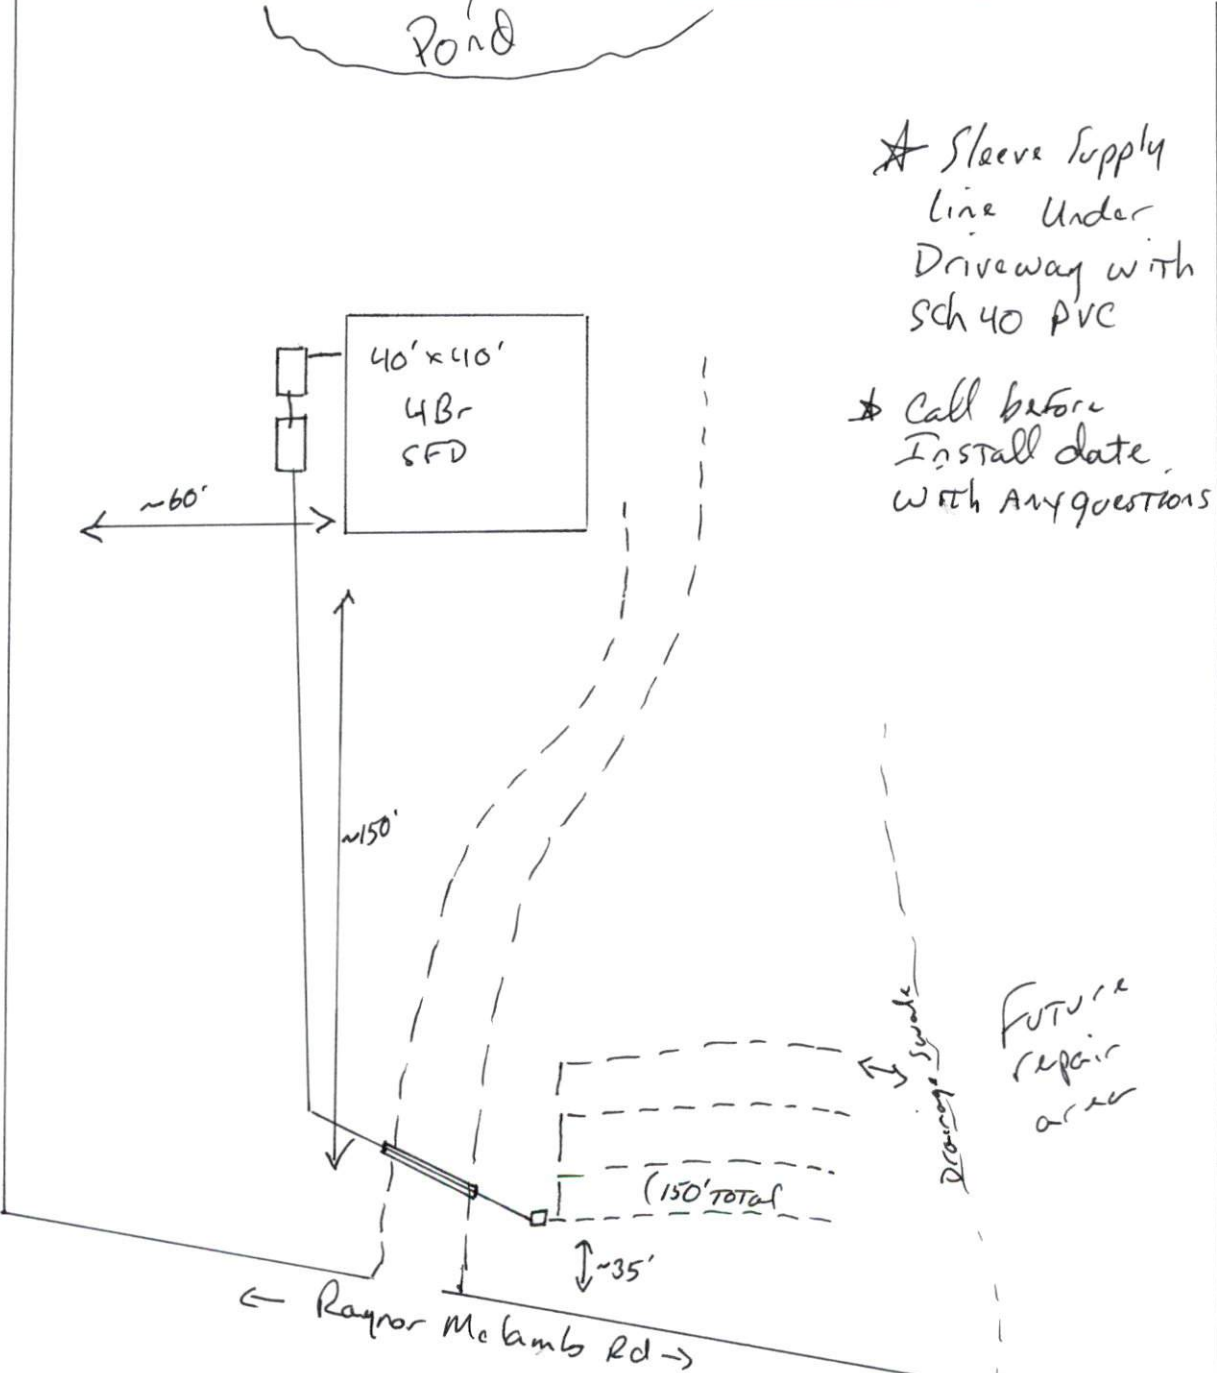 Pond
☆ Sleeve Supply
Line Under
Driveway with
Sch 40 PVC
☆ Call before
Install date
with Any questions
40' x 40'
4Br
SFD
~60'
~150'
Drainage Swale
Future
repair
area
(150' Total
~35'
← Raynor McLamb Rd →